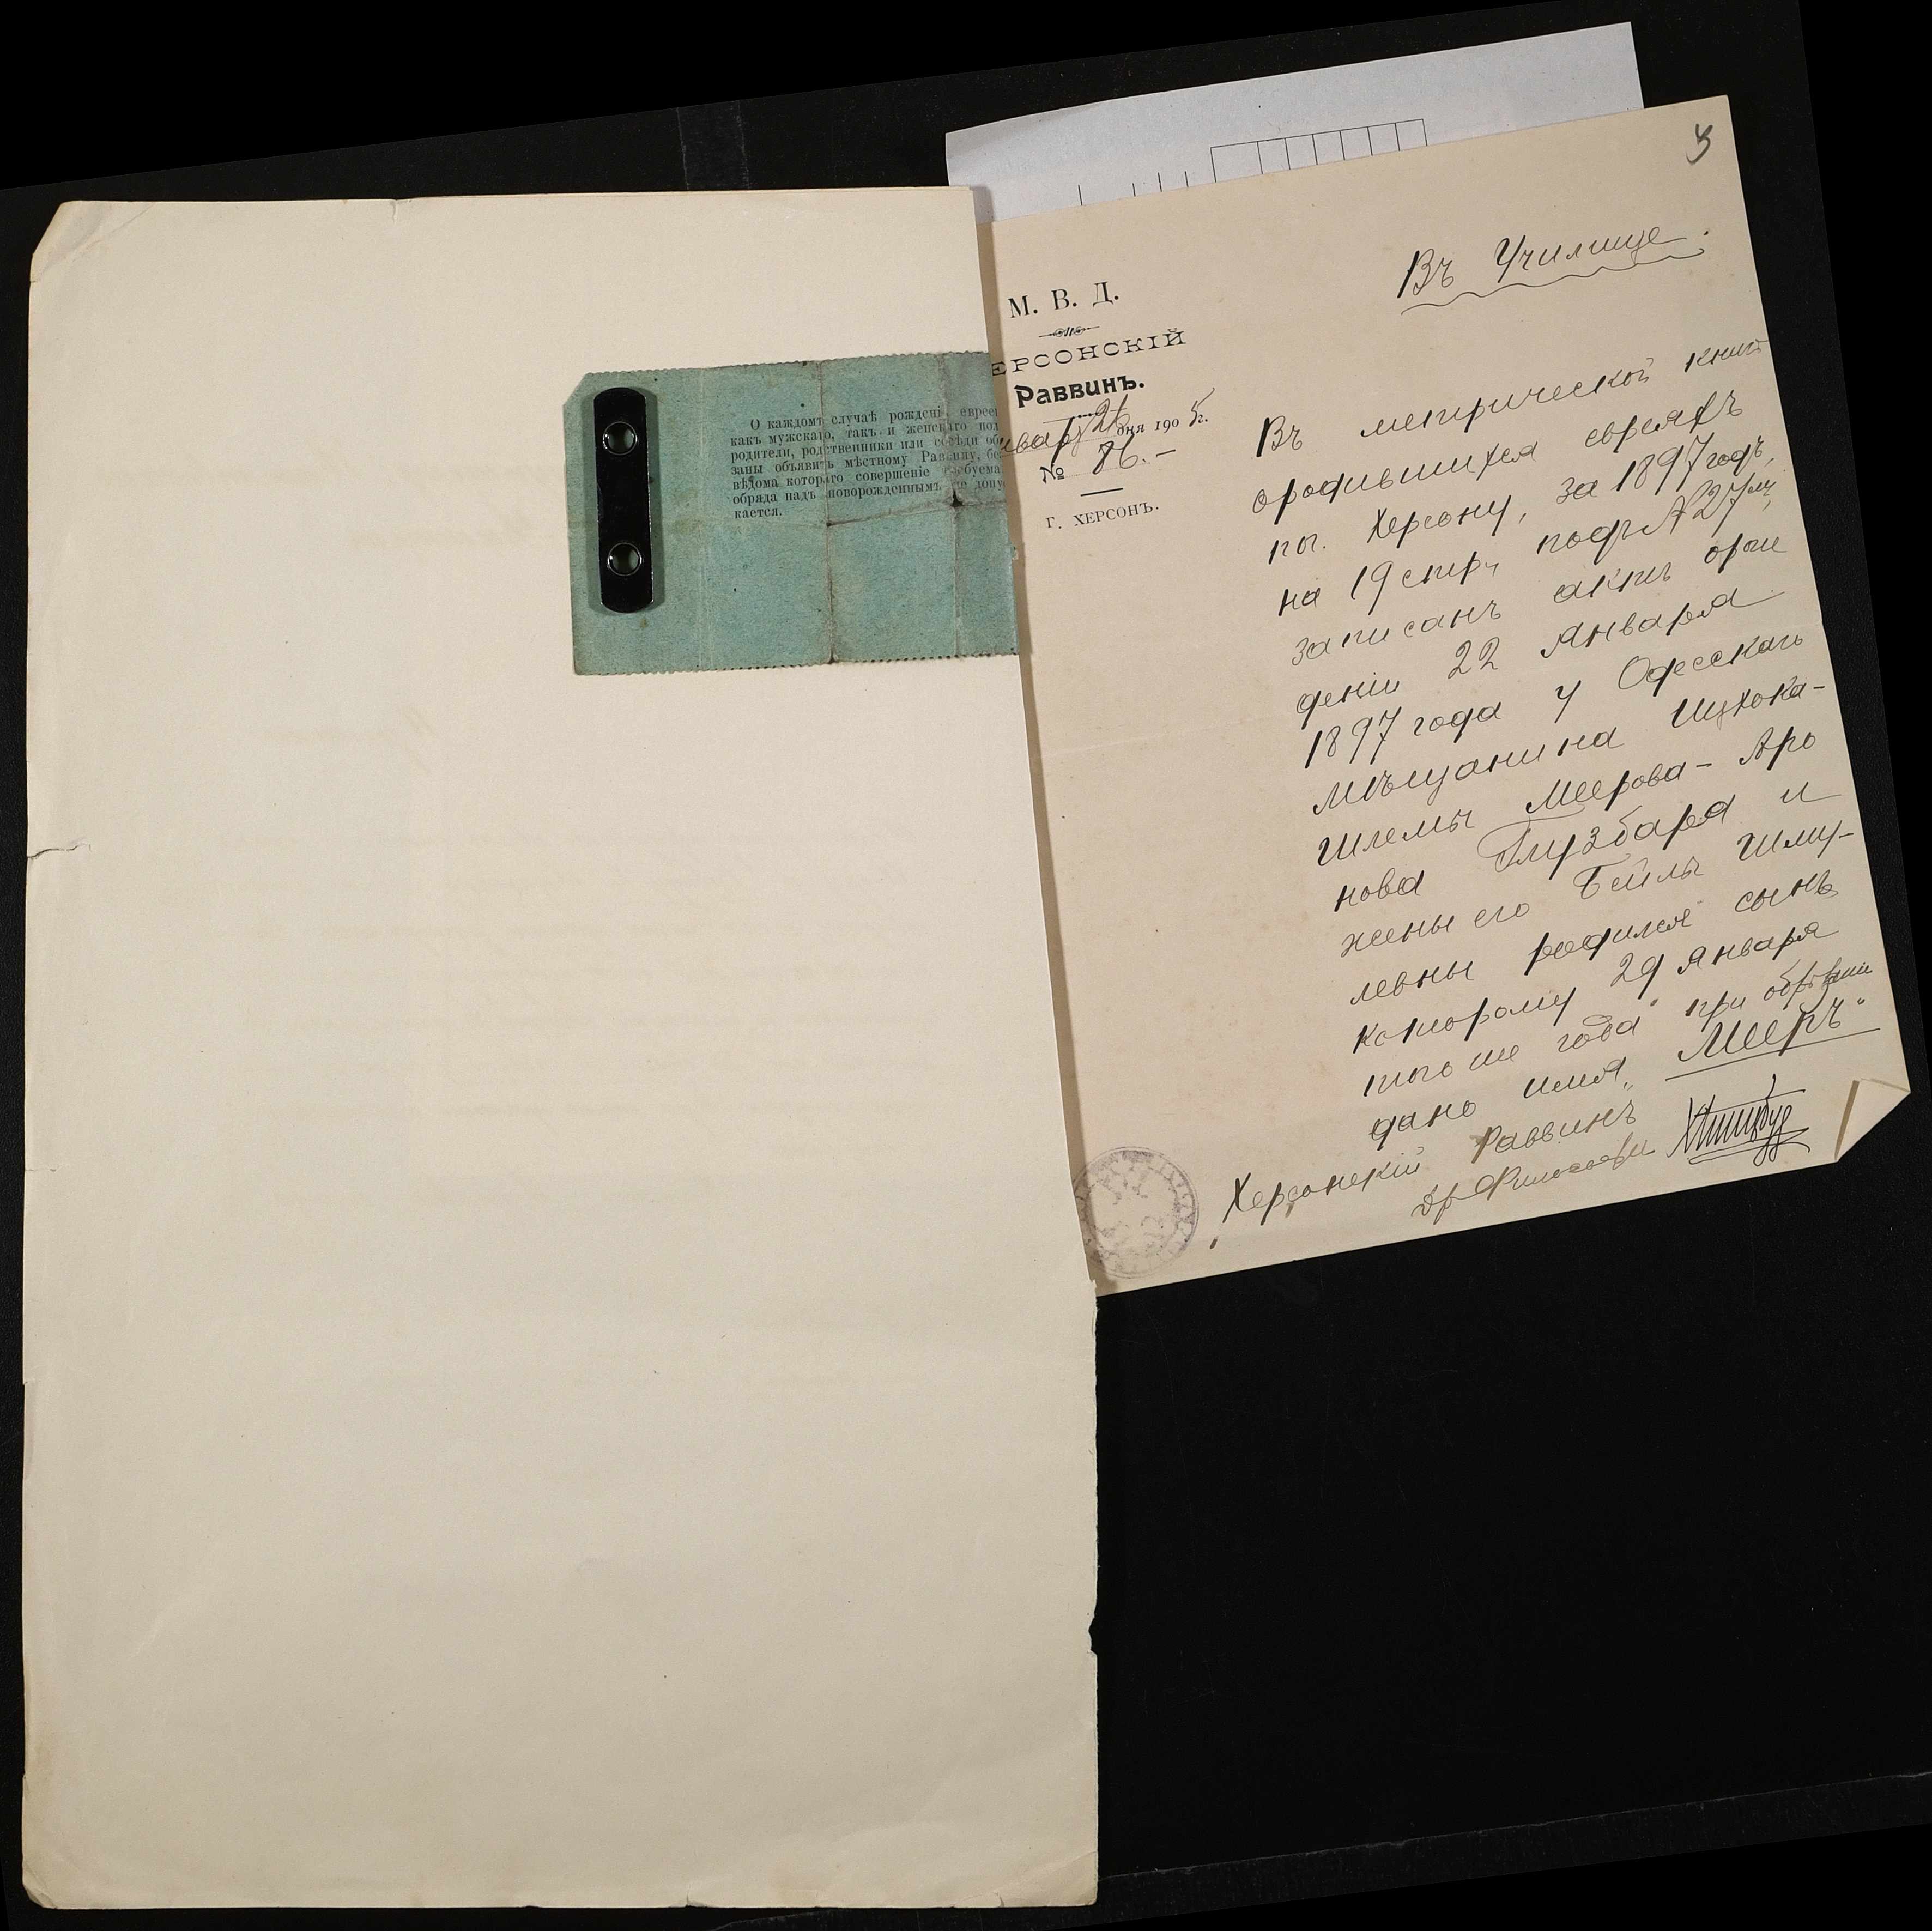 О каждомъ случаѣ рожденія евреев
какъ мужскаго, такъ и женскаго пол
родители, родственники или сосѣди обя
заны объявить мѣстному Раввину, бе
вѣдома котораго совершеніе требуема
обряда надъ новорожденнымъ не допу
кается.
5
М. В. Д.
ЕРСОНСКІЙ
Раввинъ.
26 дня 1905 г.
№ 86.-
Г. ХЕРСОНЪ.
Въ Училище.
Въ метрической книг
о родившихся евреяхъ
по г. Херсону, за 1897 годъ,
на 19 стр., подъ № 27
записанъ актъ о рож
деніи 22 января
1897 года у Одесскаго
мѣщанина Ицхока-
Шлемы Меерова-Аро
нова Глузбарга и
жены его Бейлы Шму-
левны родился сынъ
которому 29 января
того же года при обрѣзаніи
дано имя „Мееръ"
Херсонскій Раввинъ
Др Философіи